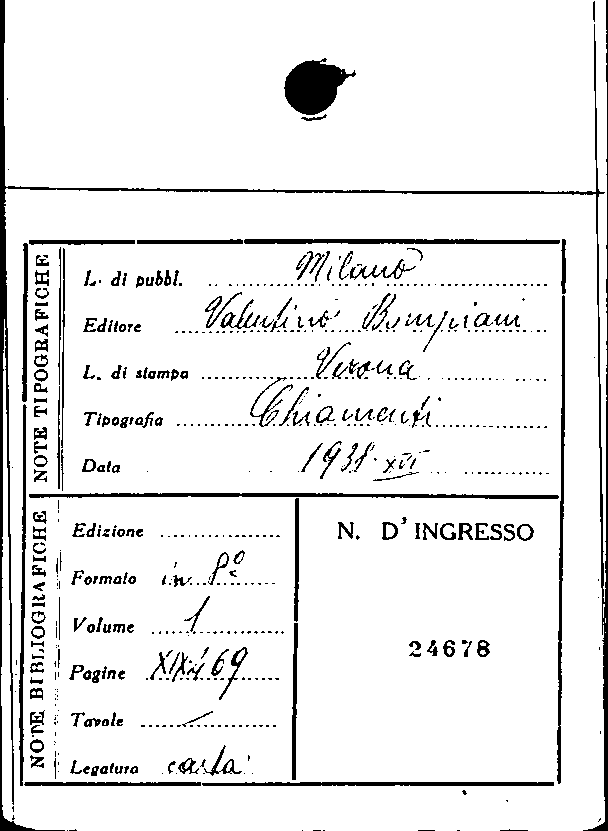 NOTE TIPOGRAFICHE
L. di pubbl. Milano
Editore Valentino Bompiani
L. di stampa Verona
Tipografia Chiamenti
Data 1938-XVI
NOTE BIBLIOGRAFICHE
Edizione
Formato in 8º
Volume 1
Pagine XIX,469
Tavole /
Legatura carta
N. D'INGRESSO
24678